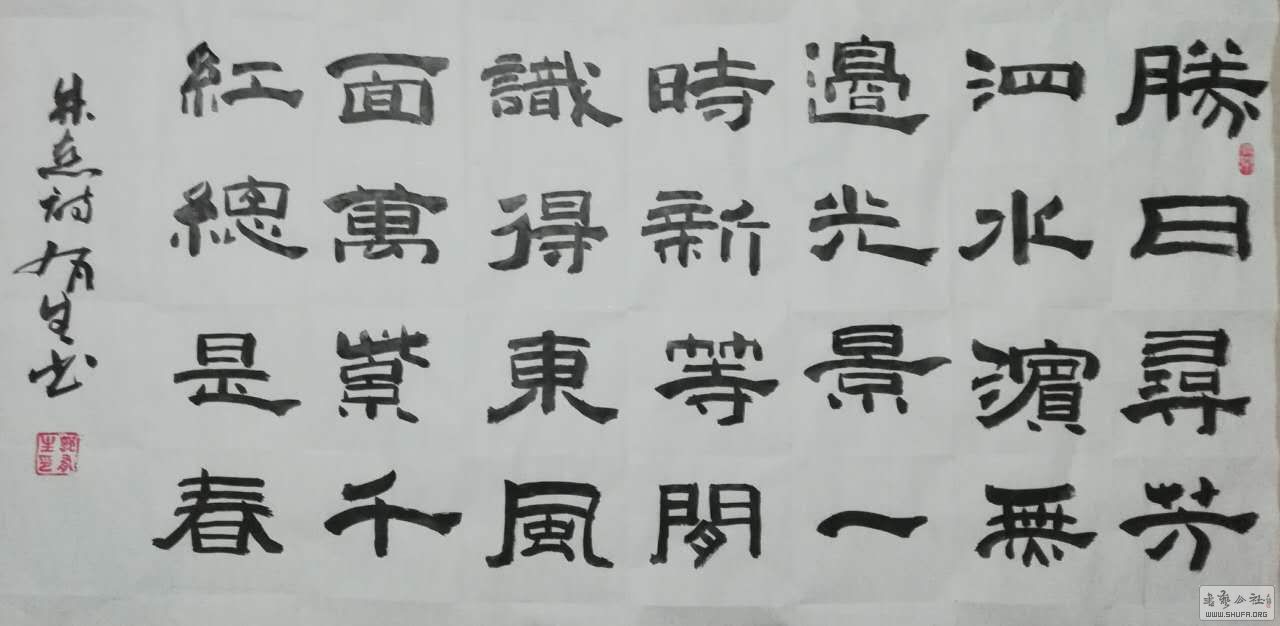 勝日尋芳
泗水濱無
邊光景一
時新等閒
識得東風
面萬紫千
紅總是春
朱熹詩有生书
書藝公社
WWW.SHUFA.ORG